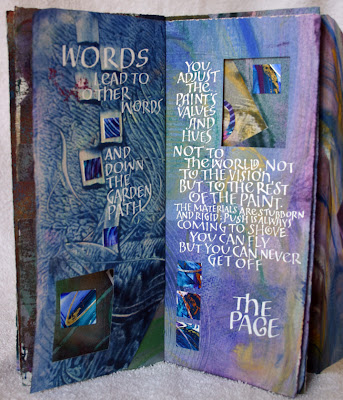 WORDS
LEAD TO
OTHER
WORDS
AND
DOWN
THE
GARDEN
PATH.
YOU
ADJUST
THE
PAINT'S
VALUES
AND
HUES
NOT TO
THE WORLD, NOT
TO THE VISION,
BUT TO THE REST
OF THE PAINT.
THE MATERIALS ARE STUBBORN
AND RIGID: PUSH IS ALWAYS
COMING TO SHOVE
YOU CAN FLY
BUT YOU CAN NEVER
GET OFF
THE
PAGE